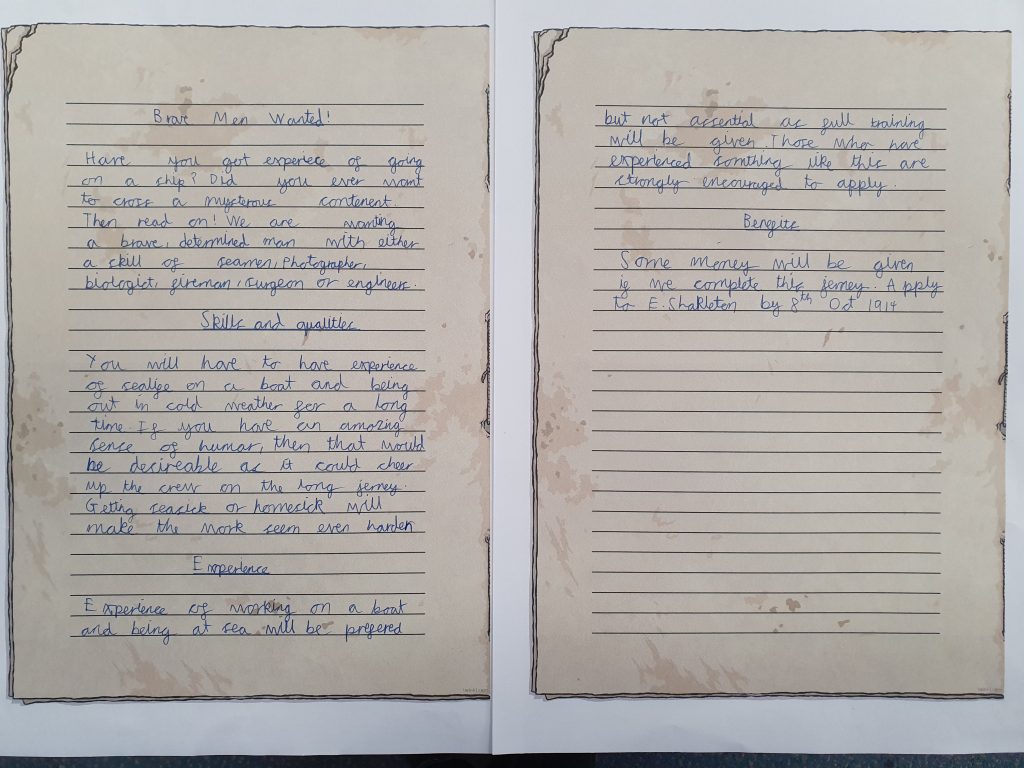 Brave Men Wanted!
Have you got experiece of going
on a ship? Did you ever want
to cross a mysterous contenent.
Then read on! We are wanting
a brave, determined man with either
a skill of seamen, photographer,
biologist, fireman, surgeon or engineer.
Skills and qualities
You will have to have experience
of sealife on a boat and being
out in cold weather for a long
time. If you have an amazing
sense of humar, then that would
be desireable as it could cheer
up the crew on the long jerney.
Getting seasick or homesick will
make the work seem even harder.
Experience
Experience of working on a boat
and being at sea will be prefered
but not assential as full training
will be given. Those who have
experienced somthing like this are
strongly encouraged to apply.
Benefits
Some money will be given
if we complete this jerney. Apply
to E. Shakleton by 8th Oct 1914